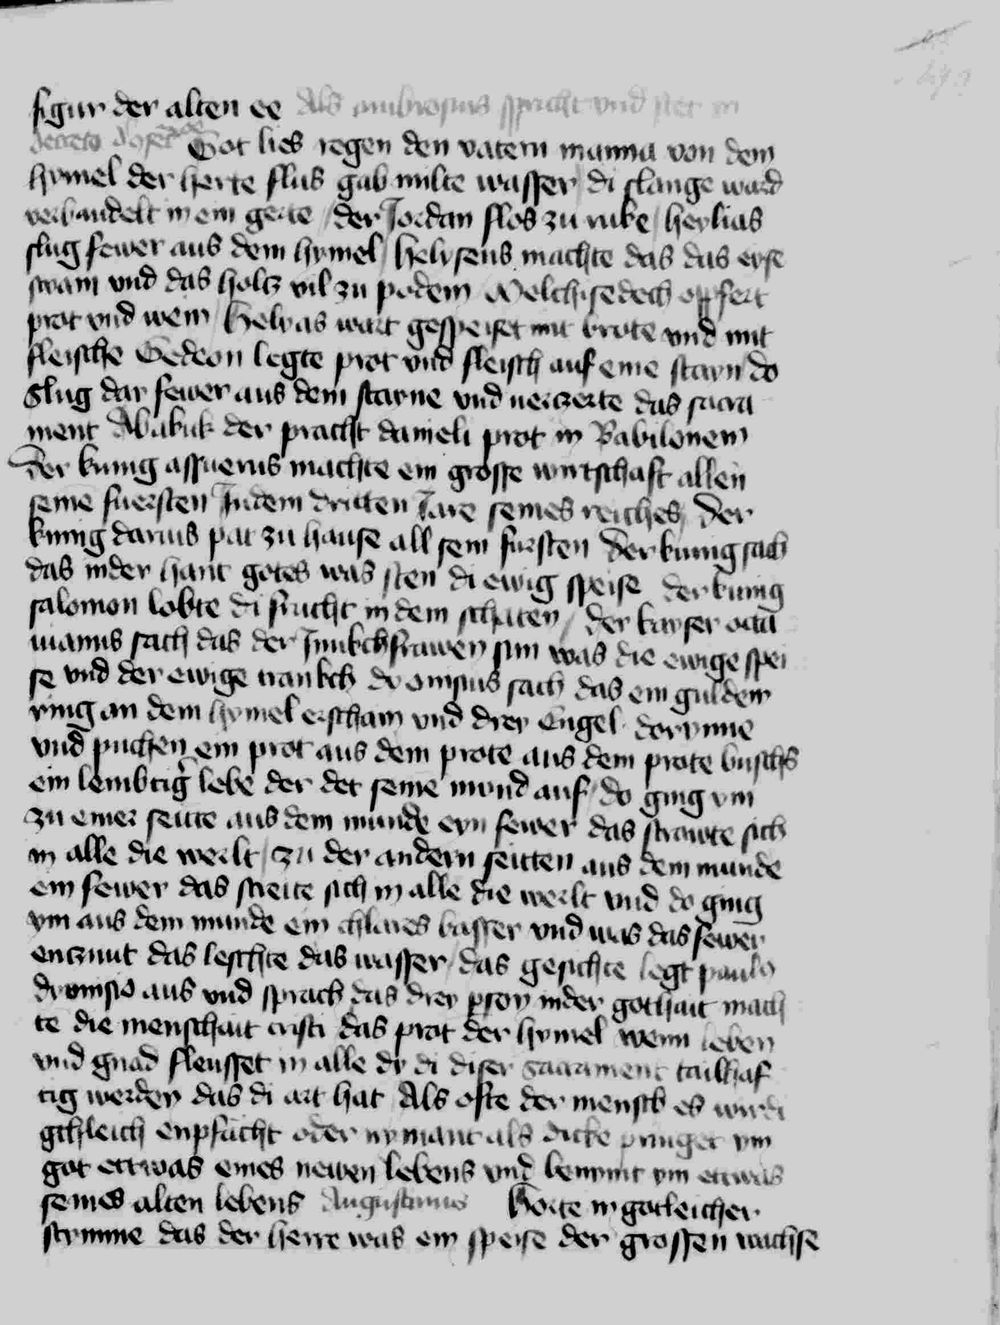 figur der alten ee Als ambrosius spricht vnd stet in
decreto Got lies regen den vatern manna von dem
hymel der herte flus gab milte wasser / di slange ward
verbandelt in ein gerte / der Jordan flos zu ruke / heylias
slug fewer aus dem hymel / helyseus machte das das eyse
swam vnd das holtz vil zu podem Melchisedech opfert
prot vnd wein / Helyas wart gespeiset mit brote vnd mit
fleische Gedeon legte prot vnd fleisch auf eine stayn do
slug dar fewer aus dem stayne vnd uerczerte das sacra
ment Abakuk der pracht danieli prot in Babilonem
Der kunig assuerus machte ein grosse wirtschaft allen
seine fuersten Indem dritten Jare seines reiches / Der
kunig darius pat zu hause all sein fursten Der kunig sach
das inder hant gotes was sten di ewig speise der kunig
salomon lobte di frucht in dem schaten / der kayser octa
uianus sach das der Junkchfrawen sun was die ewige spei
se vnd der ewige trankch dyonisius sach das ein guldein
ring an dem hymel erscham vnd drey Engel dorynne
vnd puchen ein prot aus dem prote aus dem prote buschs
ein lembtig lebe der det seine mund auf / do ging ym
zu einer seitte aus dem munde eyn fewer das strawte sich
in alle die werlt / zu der andern seitten aus dem munde
ein fewer das streite sich in alle die werlt vnd do ging
ym aus dem munde ein chlares basser vnd was das fewer
enczunt das leschte das wasser / das gesichte legt paulo
dyonisio aus vnd sprach das drey pson inder gothait mach
te die menschait cristi das prot der hymel wenn leben
vnd gnad fleusset in alle dy di diser sacrament tailhaf
tig werden das di art hat Als ofte der mensch es wirdi
gchleich enpfacht oder nymant als dicke pringet ym
got ettwas eines newen lebens vnd benymt ym ettwas
seines alten lebens Augustinus Horte in gotleicher
stymme das der herre was ein speise der grossen wachse